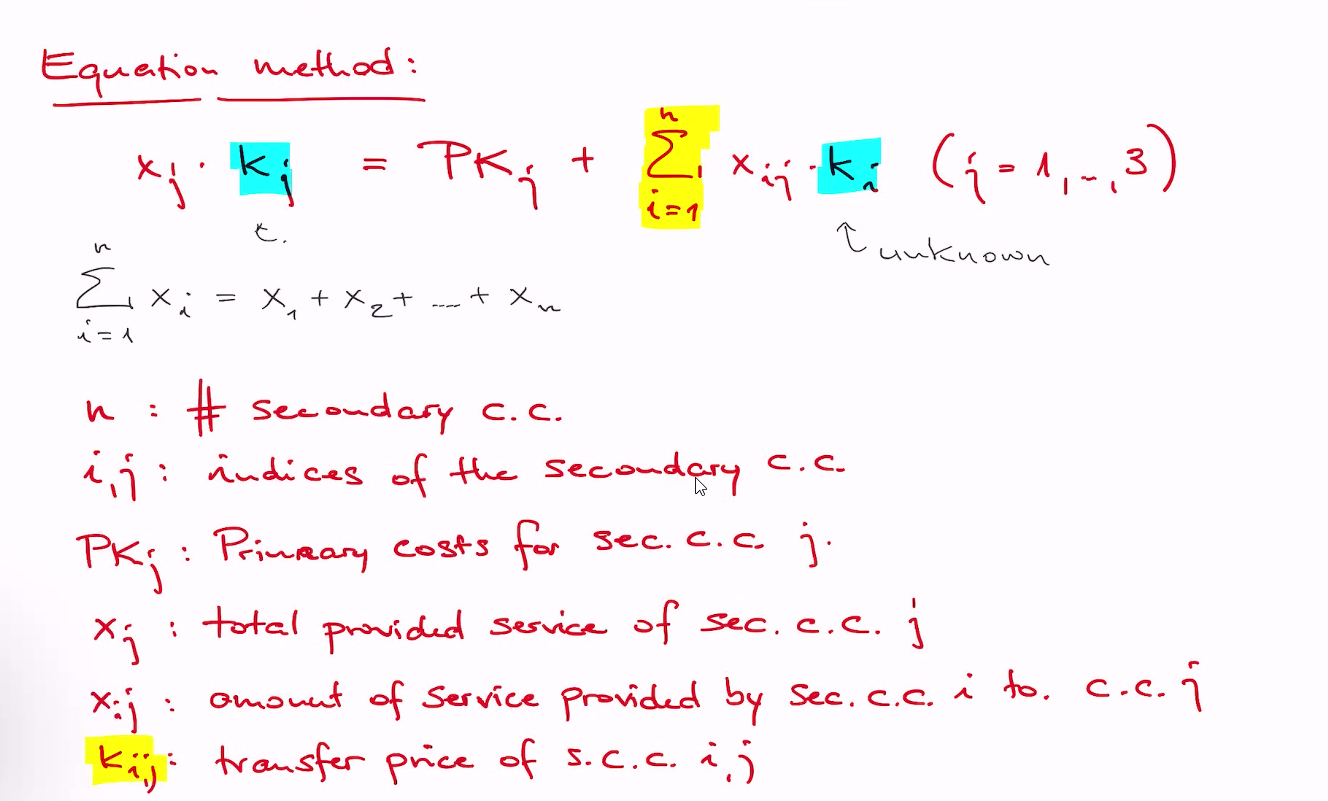 Equation method:
xj · kj = PKj + n∑i=1 xij · ki (j = 1, .., 3)
t.
↑ unknown
n∑i=1 xi = x1 + x2 + .... + xn
n : # secondary c.c.
i,j : indices of the secondary c.c.
PKj : Primary costs for sec. c.c. j.
xj : total provided service of sec. c.c. j
xij : amount of service provided by sec. c.c. i to. c.c. j
ki,j : transfer price of s.c.c. i,j